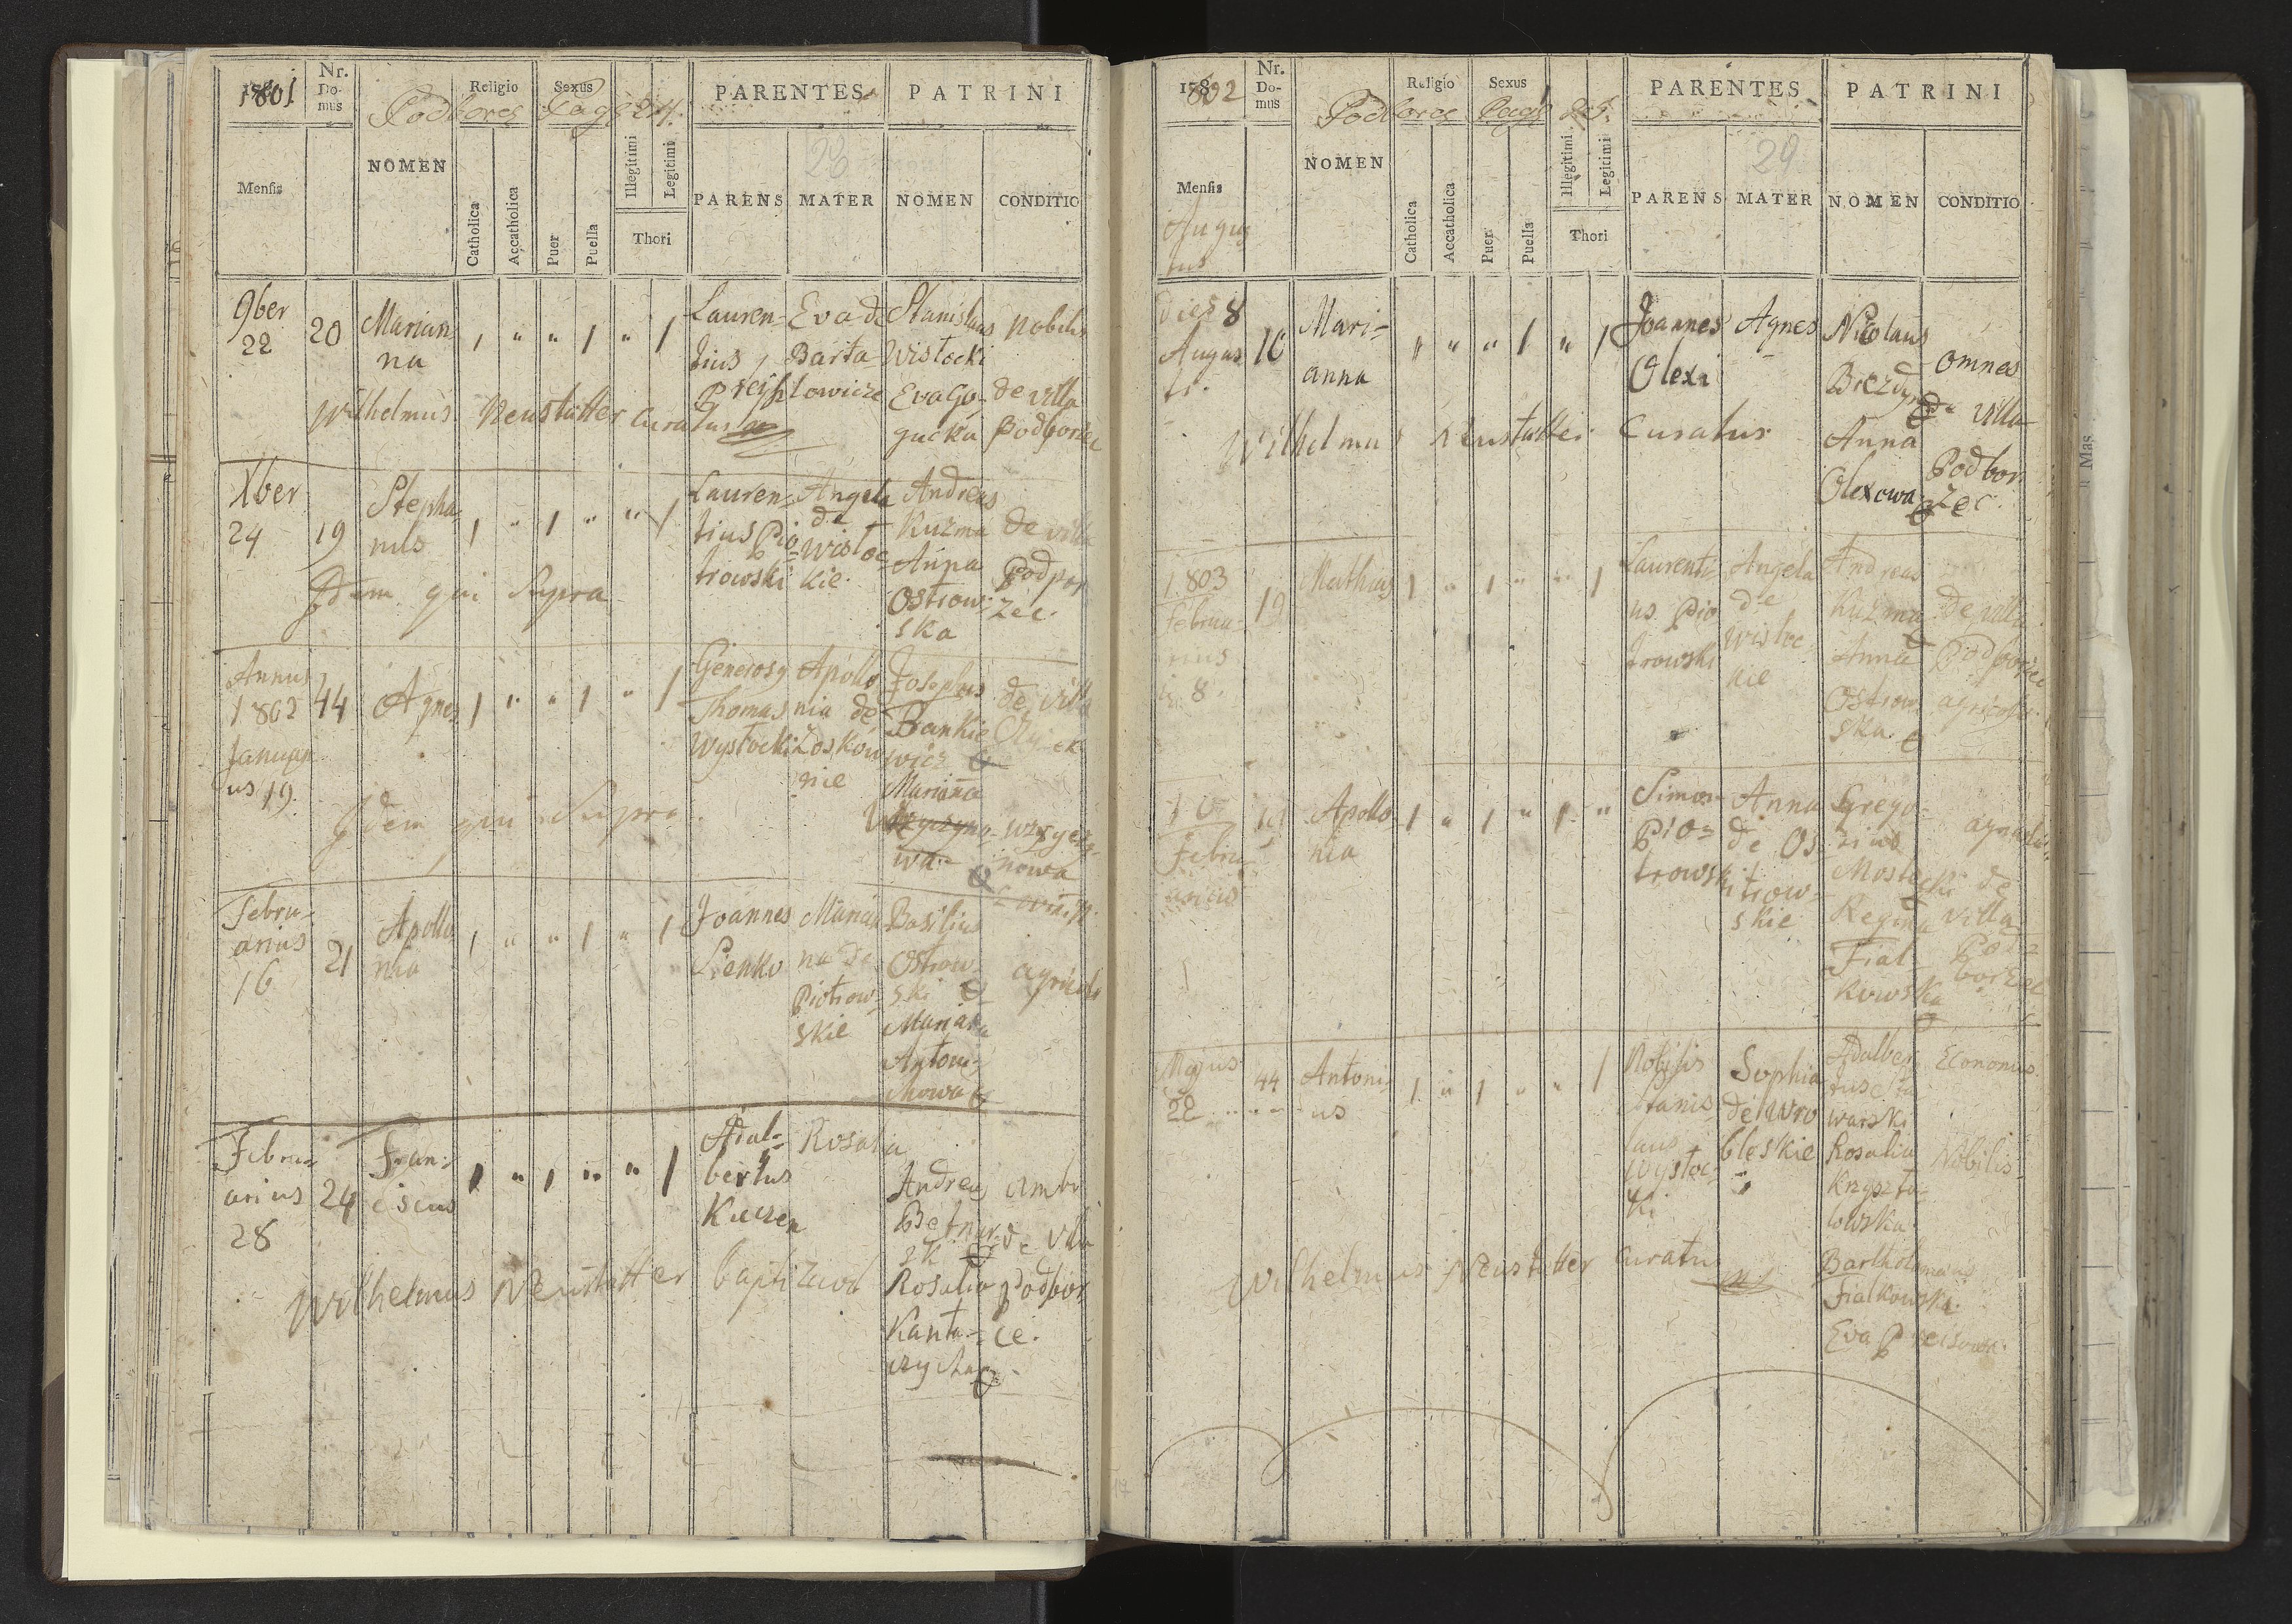 1801
Nr. Domus
Podborce Pag. 24.
Religio
Sexus
PARENTES
PATRINI
28
Mensis
NOMEN
Catholica
Accatholica
Puer
Puella
Illegitimi
Legitimi
Thori
PARENS
MATER
NOMEN
CONDITIO
9ber
22
20
Marian
na
Lauren-
tius
Eva de
Barta-
Stanislaus
Wistocki
Nobilis
Eva
de villa
Podborzec
Wilhelmus Neustatter Curatus
Xber
24
19
Stepha
nus
Lauren-
tius Pio
trowski
Angela
de
Wistoc
kie.
Andreas
Kuzma
Anna
Ostrow
ska
de villa
Podpor
zec.
Idem qui Supra
Annus
1802
Januari
us 19.
44
Agnes
Generosy
Thomas
Wystocki
Apollo
nia de
Zoskow
nie
Josephus
Frankie
wicz
Marianna
de villa
Idem qui Supra
Febru-
arius
16
21
Apollo
nia
Joannes
Sienko
Marian
na de
Piotrow
skie
Basilius
Ostrow
ski
Mariana
Antoni-
kowa
agricola
Febru-
arius
28
24
Fran-
ciscus
Adal-
bertus
Kuczen
Rosalia
Andreas
Rosalia
ambo
de villa
Podbor
ce.
Wilhelmus Neustatter baptizavit
1802
Nr. Domus
Podborce Pag. 25.
Religio
Sexus
PARENTES
PATRINI
29
Mensis
NOMEN
Catholica
Accatholica
Puer
Puella
Illegitimi
Legitimi
Thori
PARENS
MATER
NOMEN
CONDITIO
Augus
tus
dies 8
Augus
ti.
16
Mari-
anna
Joannes
Olexi
Agnes
Nicolaus
Anna
Olexowa
omnes
de villa
Podbor
zec.
Wilhelmus Neustatter Curatus
1803
Februa-
rius
8.
19
Mathias
Laurenti-
us Pio
trowski
Angela
de
Wistoc
kie
Andreas
Kuzma
Anna
Ostrow
ska
de villa
Podborzec
agricola
10
Febru
arius
19
Apollo
nia
Simon
Pio-
trowski
Anna
de Os-
trow-
skie
Grego-
rius
Mostocki
Regina
Fial-
kowska
de
villa
Pod-
borzec
Majus
22
44
Antoni-
us
Nobilis
Stanis
laus
Wystoc-
ki
Sophia
de Wro
bleskie
Adalber
tus
Rosalia
Krzyszto-
lowska
Economus.
Nobilis
Bartholomaeus
Fialkowski.
Eva
Wilhelmus Neustatter Curatus